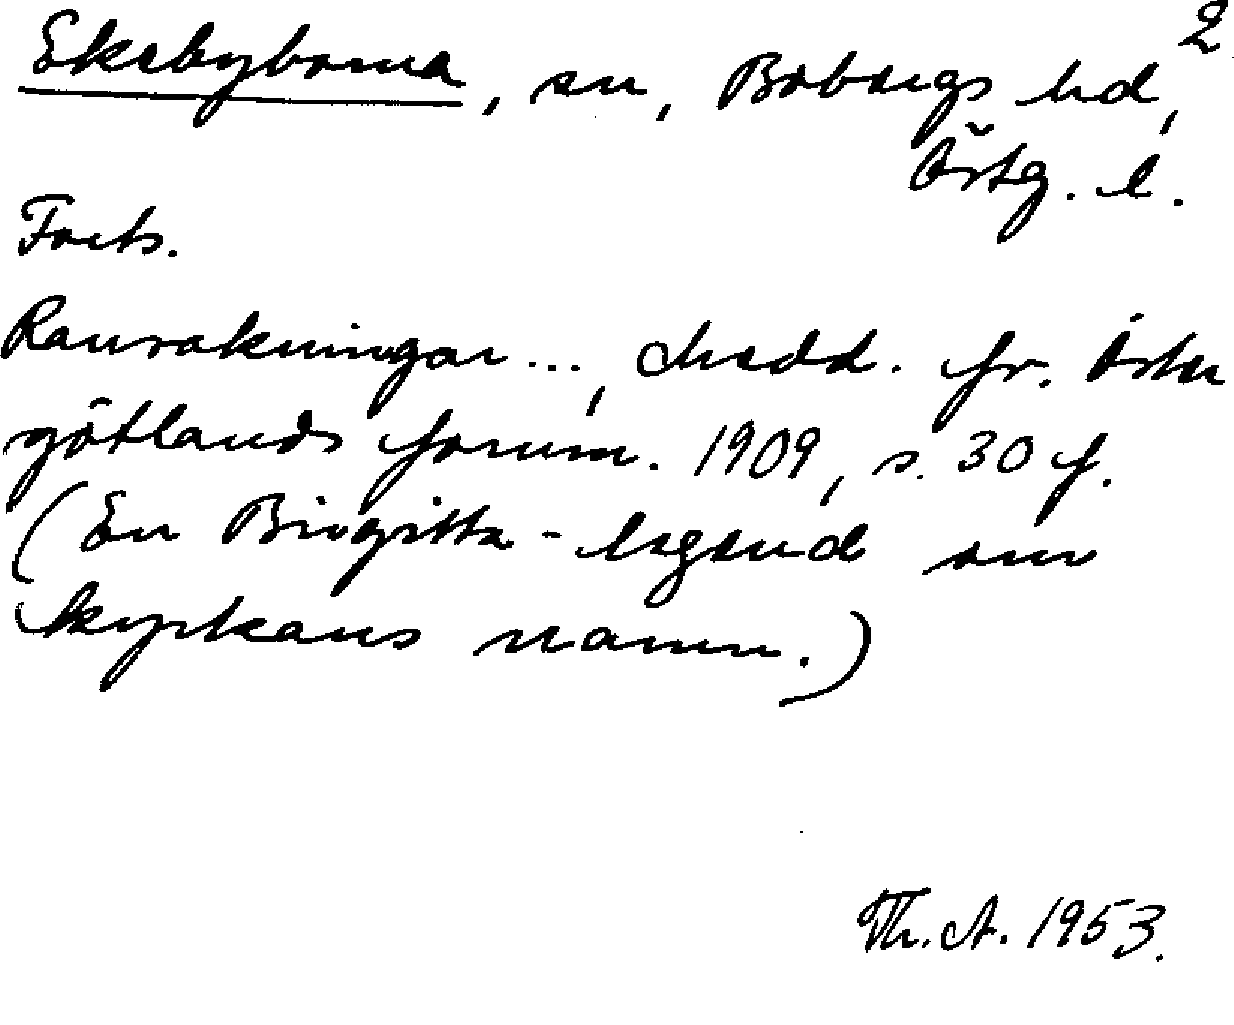 2
Ekebyborna, sn, Bobergs hd,
Östg. l.
Forts.
Ransakningar..., Medd. fr. Öster
götlands fornm. 1909, s. 30 f.
(En Birgitta-legend om
kyrkans namn.)
Th. A. 1953.